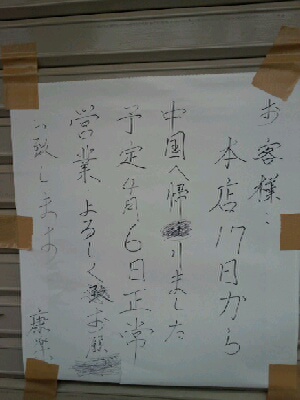 お客様:
本店17日から
中国へ帰りました
予定4月6日正常
営業よろしくお願
い致します